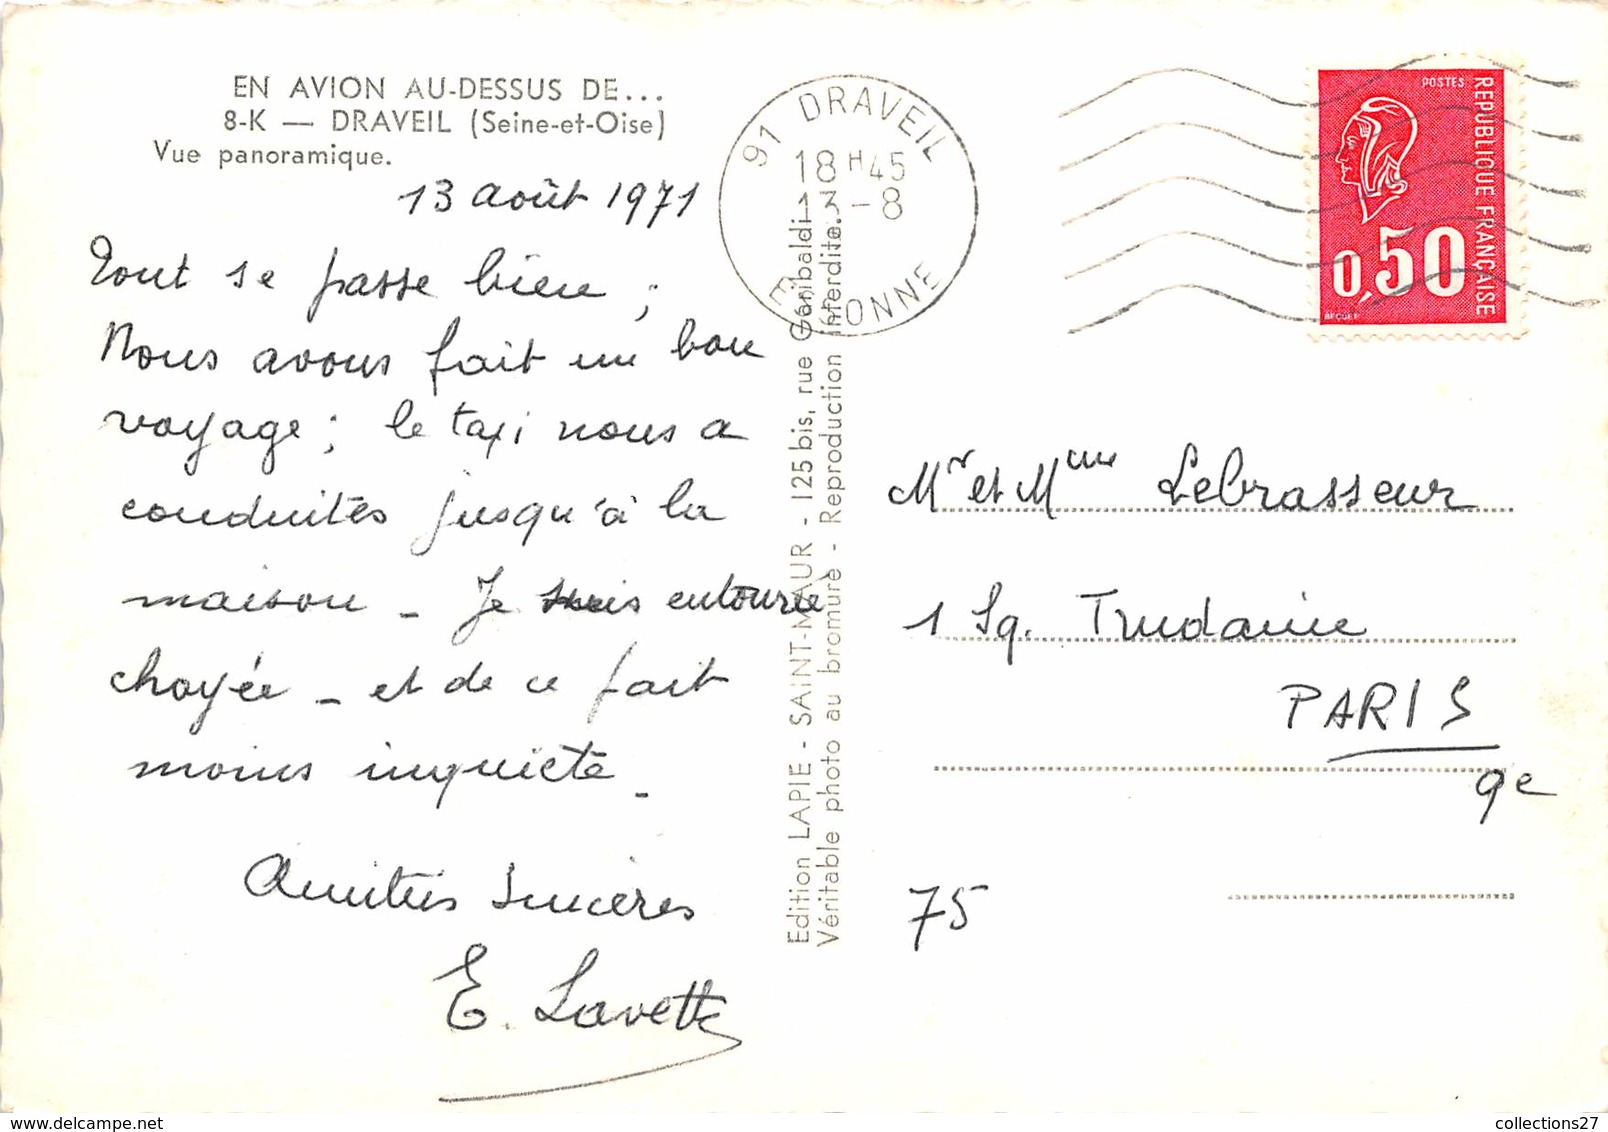 EN AVION AU-DESSUS DE...
8-K — DRAVEIL (Seine-et-Oise)
Vue panoramique.
13 août 1971
Tout se passe bien ;
Nous avons fait un bon
voyage ; le taxi nous a
conduites jusqu'à la
maison - Je suis entourée
choyée - et de ce fait
moins inquiète -
Amitiés sincères
E. Lavette
Edition LAPIE - SAINT-MAUR - 125 bis, rue Garibaldi
Véritable photo au bromure - Reproduction interdite.
91 DRAVEIL
18H45
13-8
ESSONNE
POSTES
REPUBLIQUE FRANÇAISE
0,50
BEQUET
Mr et Mme Lebrasseur
1 Sq. Trudaine
PARIS
9e
75
collections27